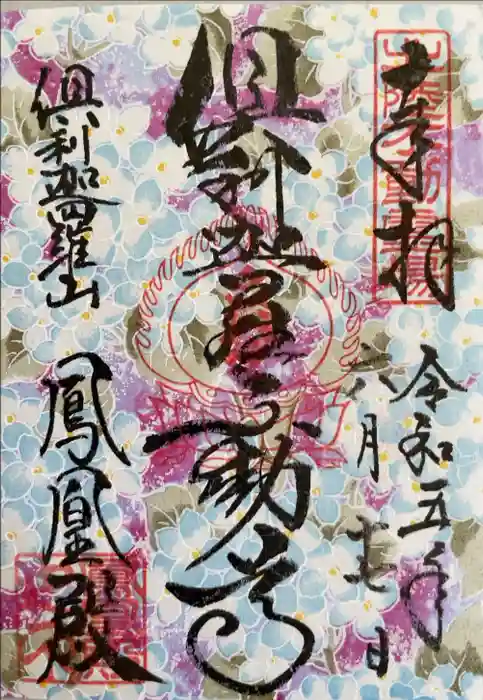 奉拝
令和五年
六月十七日
倶利迦羅不動尊
倶利迦羅山
鳳凰殿